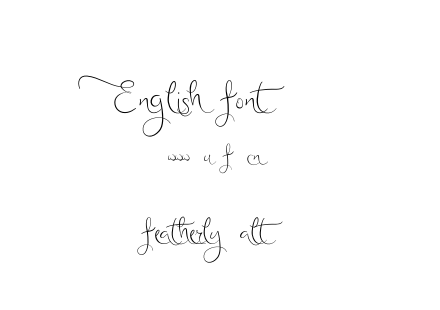 English font
www u f cn
featherly alt